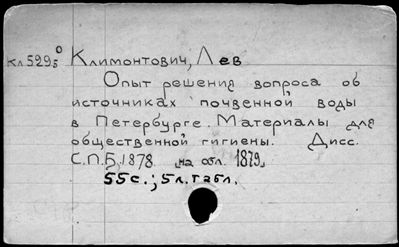 Кл 529₅⁰ Климонтович, Лев
Опыт решения вопроса об
источниках почвенной воды
в Петербурге. Материалы для
общественной гигиены. Дисс.
С.П.Б, 1878 „на обл. 1879„
55с.; 5л. табл.